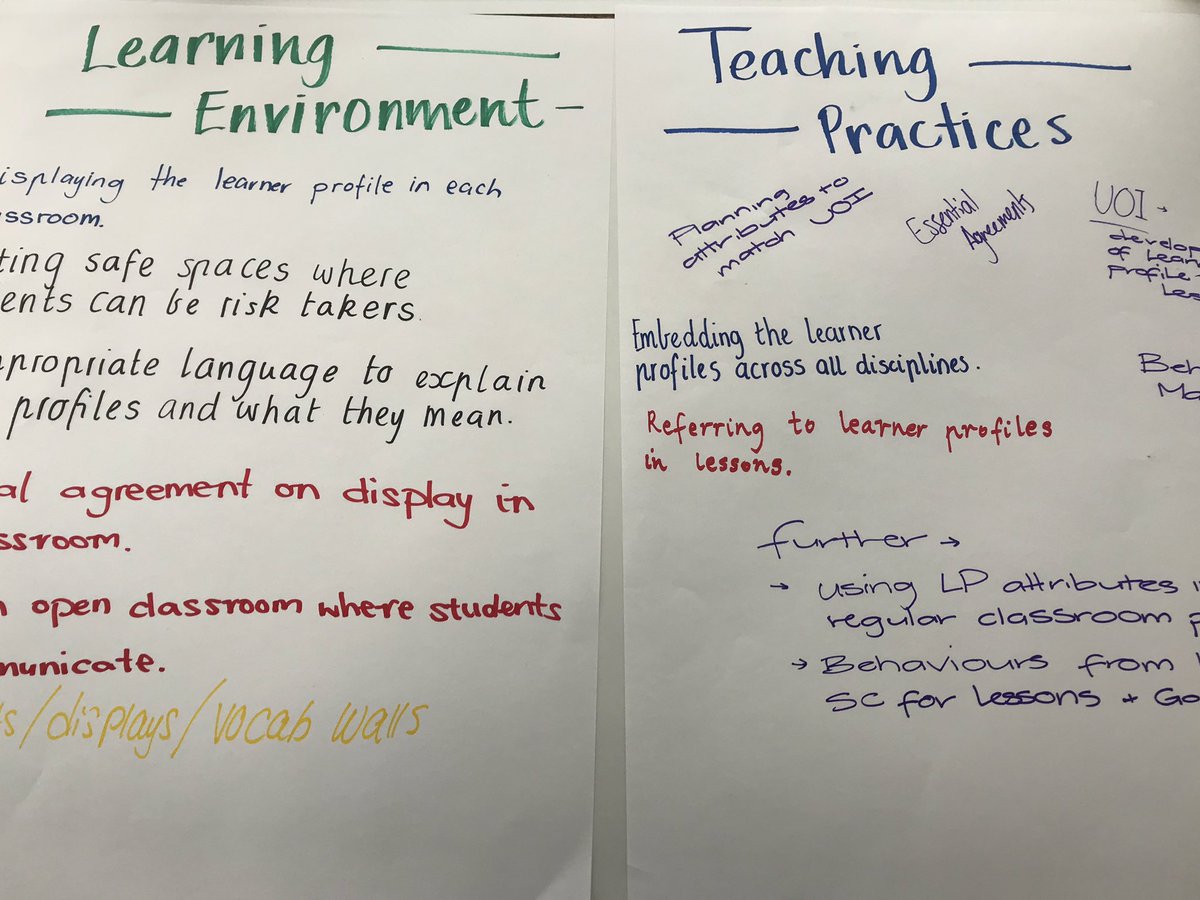 Learning
Environment
isplaying the learner profile in each
ssroom.
ting safe spaces where
ents can be risk takers.
propriate language to explain
profiles and what they mean.
al agreement on display in
ssroom.
n open classroom where students
municate.
ts/displays/vocab walls
Teaching
Practices
Planning
attributes to
match UOI
Essential
Agreements
UOI →
develop
of Lear
profile
Les
Embedding the learner
profiles across all disciplines.
Beh
Ma
Referring to learner profiles
in lessons.
further →
→ using LP attributes i
regular classroom p
→ Behaviours from
SC for lessons + Go